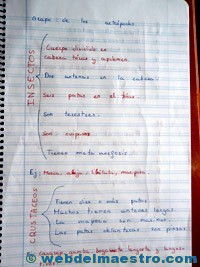 Grupo de los artrópodos
INSECTOS
Cuerpo dividido en
cabeza tórax y abdomen.
Dos antenas en la cabeza.
Seis patas en el tórax.
Son terrestres.
Son ovíparos
Tienen metamorfosis.
Ej: Mosca, abeja, libélula, mariposa
CRUSTACEOS
Tienen diez o más patas.
Muchos tienen antenas largas.
La mayoría son marinos.
Las patas delanteras son pinzas
Cangrejo, gamba, langosta
© webdelmaestro.com